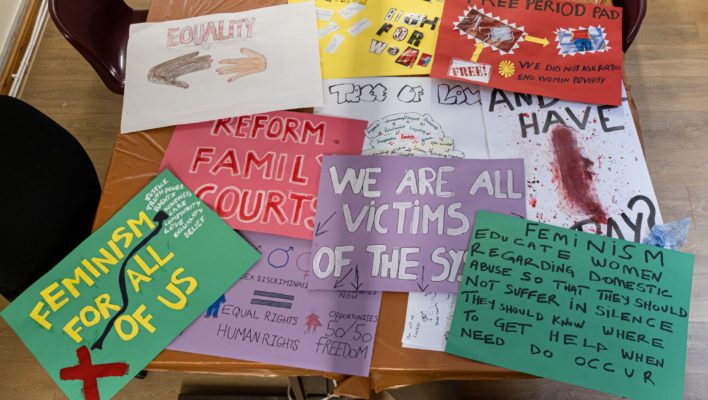 EQUALITY
RIGHT
FOR
WOM
FREE PERIOD PAD
FREE!
WE DID NOT ASK FOR THIS
END WOMEN POVERTY
TREE OF LOV
AND
HAVE
DAYS
REFORM
FAMILY
COURTS
WE ARE ALL
VICTIMS
OF THE SYS
FEMINISM
FOR ALL
OF US
JUSTICE
TRUTH
KINDNESS
CARE
COMMUNITY
LOVE
EQUALITY
BELIEF
SEX DISCRIMINA
NOW
EQUAL RIGHTS
HUMAN RIGHTS
OPPORTUNITES
50/50
FREEDOM
FEMINISM
EDUCATE WOMEN
REGARDING DOMESTIC
ABUSE SO THAT THEY SHOULD
NOT SUFFER IN SILENCE
THEY SHOULD KNOW WHERE
TO GET HELP WHEN
NEED DO OCCUR